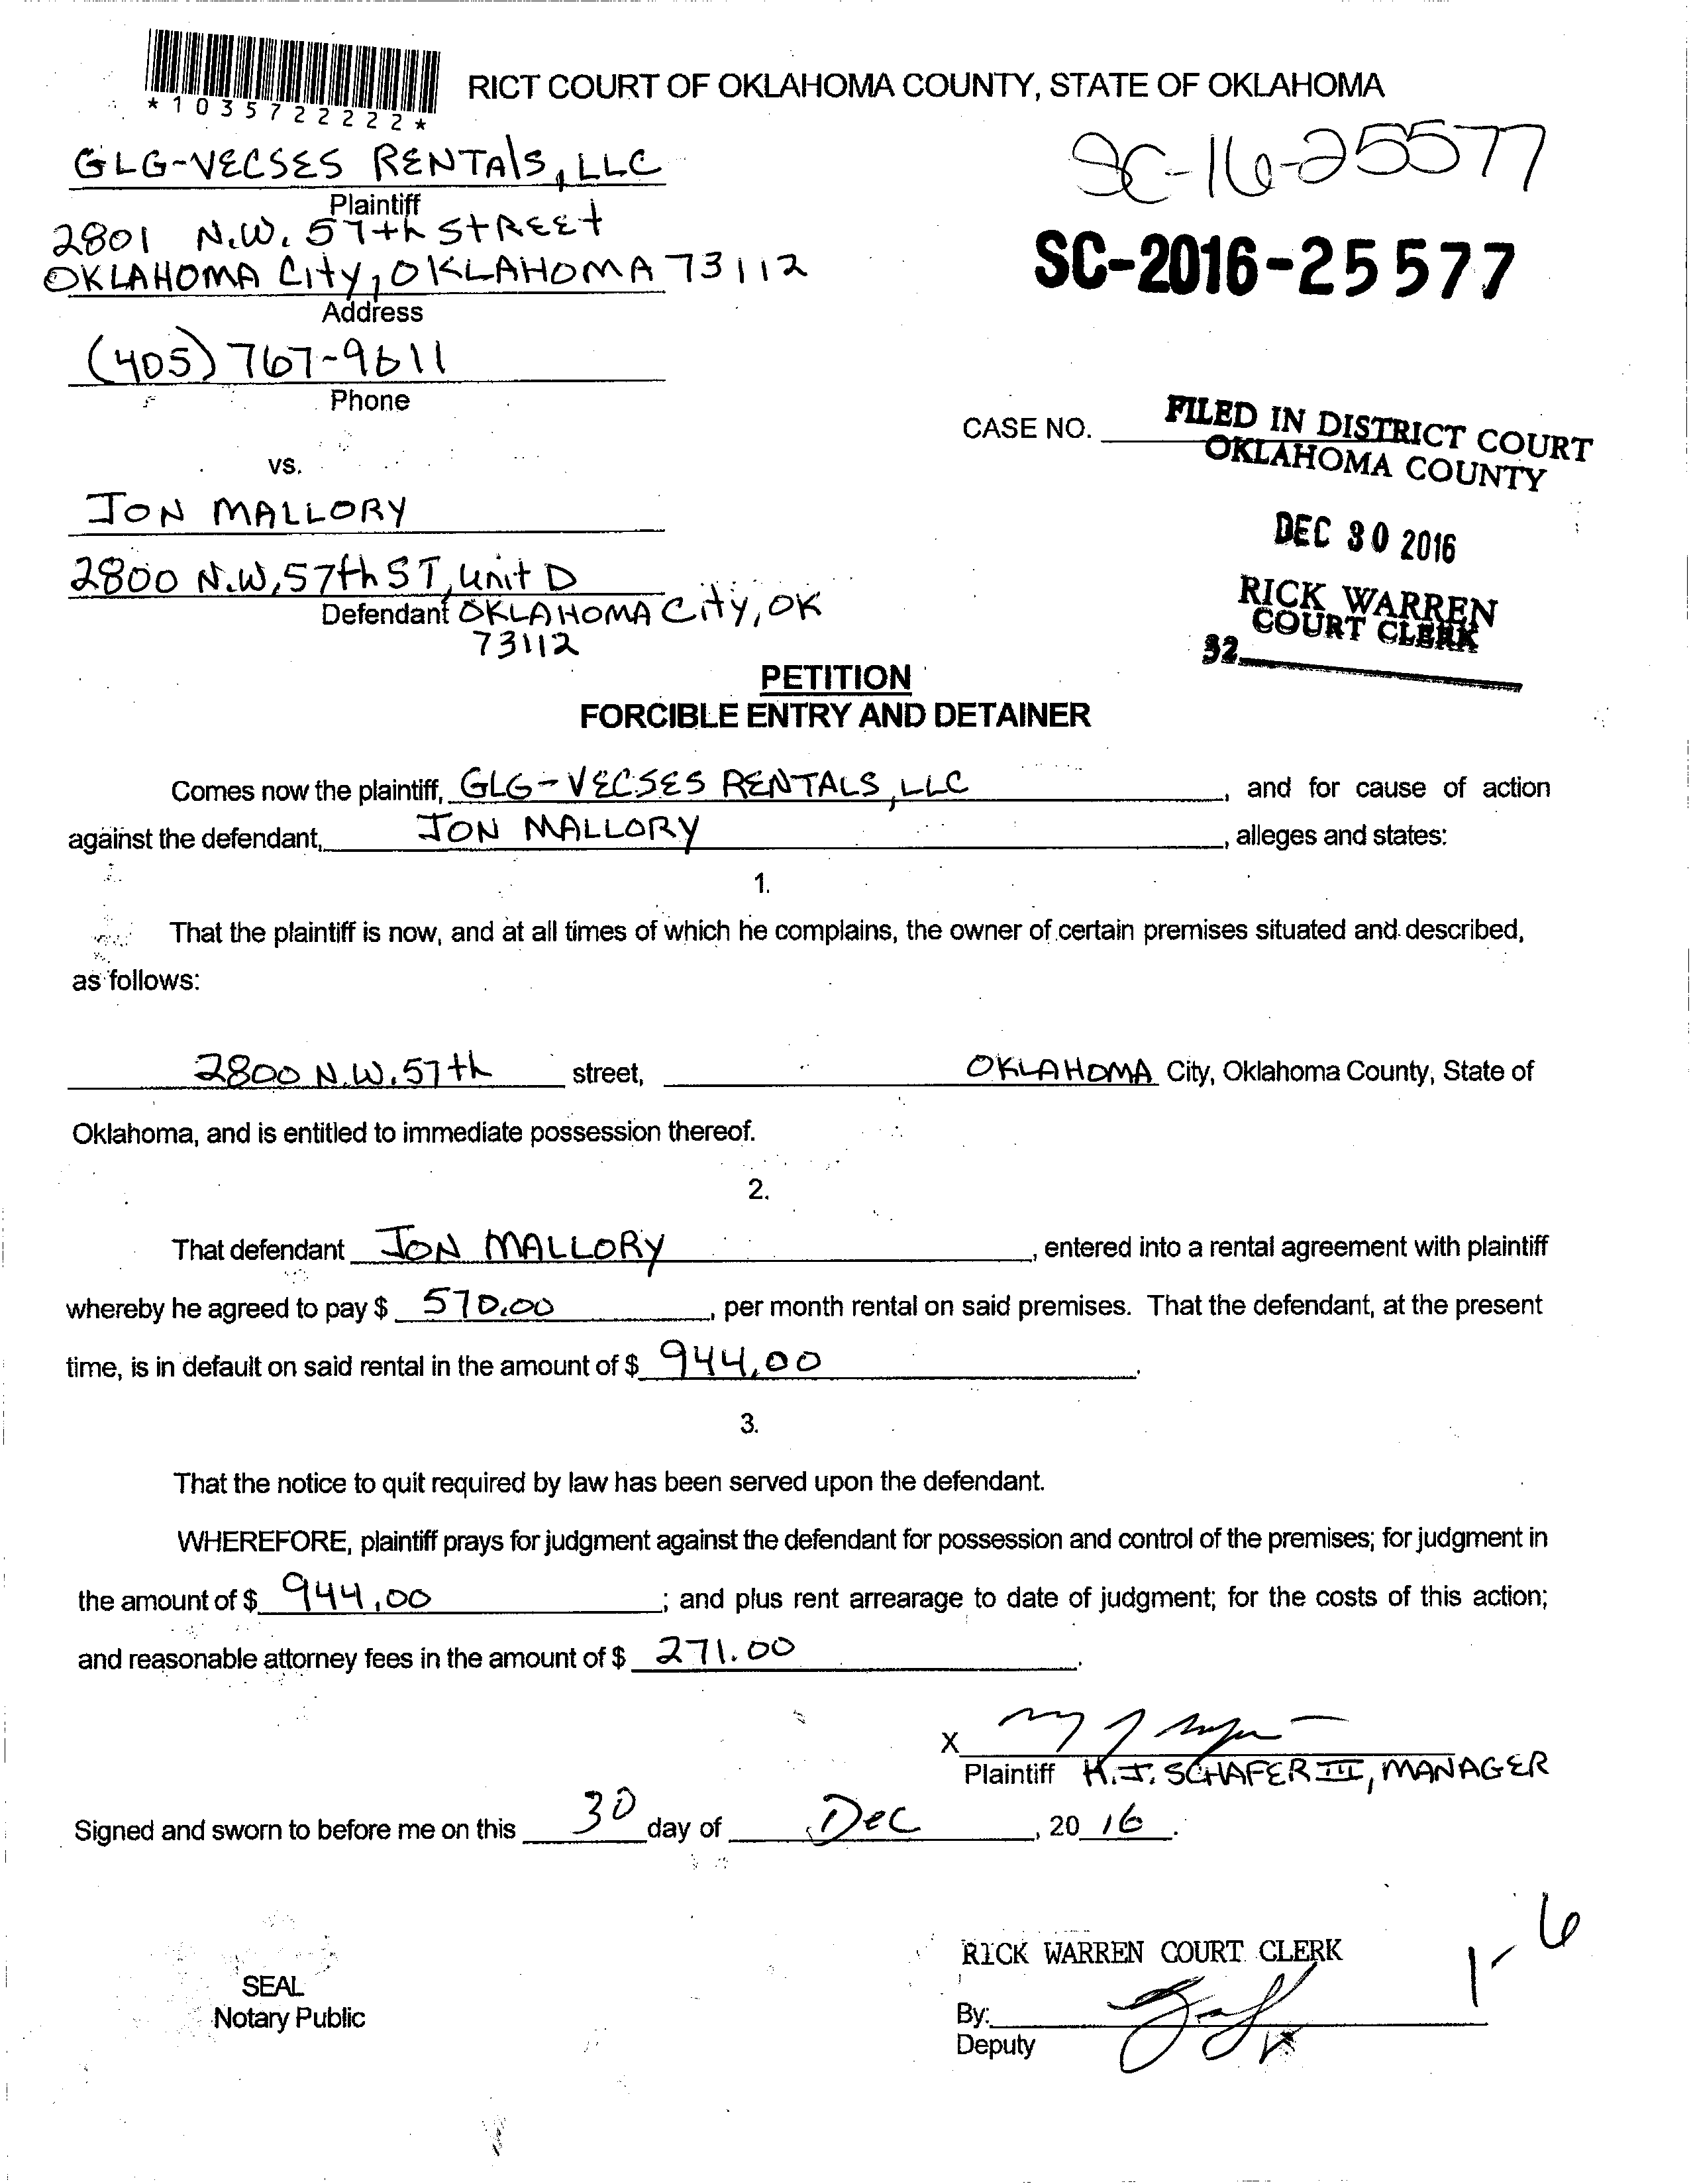 *1035722222*
RICT COURT OF OKLAHOMA COUNTY, STATE OF OKLAHOMA
SC-16-25577
GLG-VECSES RENTALS, LLC
Plaintiff
2801 N.W. 57th STREET
SC-2016-25577
OKLAHOMA CITY, OKLAHOMA 73112
Address
(405) 767-9611
Phone
CASE NO.
FILED IN DISTRICT COURT
OKLAHOMA COUNTY
vs.
JON MALLORY
DEC 30 2016
2800 N.W, 57th ST, Unit D
RICK WARREN
COURT CLERK
Defendant OKLAHOMA City, OK
73112
32
PETITION
FORCIBLE ENTRY AND DETAINER
Comes now the plaintiff, GLG-VECSES RENTALS, LLC, and for cause of action
against the defendant, JON MALLORY, alleges and states:
1.
That the plaintiff is now, and at all times of which he complains, the owner of certain premises situated and described,
as follows:
2800 N.W. 57th street, OKLAHOMA City, Oklahoma County, State of
Oklahoma, and is entitled to immediate possession thereof.
2.
That defendant JON MALLORY, entered into a rental agreement with plaintiff
whereby he agreed to pay $ 570.00, per month rental on said premises. That the defendant, at the present
time, is in default on said rental in the amount of $ 944.00.
3.
That the notice to quit required by law has been served upon the defendant.
WHEREFORE, plaintiff prays for judgment against the defendant for possession and control of the premises; for judgment in
the amount of $ 944.00; and plus rent arrearage to date of judgment; for the costs of this action;
and reasonable attorney fees in the amount of $ 271.00.
X
Plaintiff H.J. SCHAFER III, MANAGER
Signed and sworn to before me on this 30 day of Dec, 20 16.
1-6
RICK WARREN COURT CLERK
SEAL
Notary Public
By:
Deputy